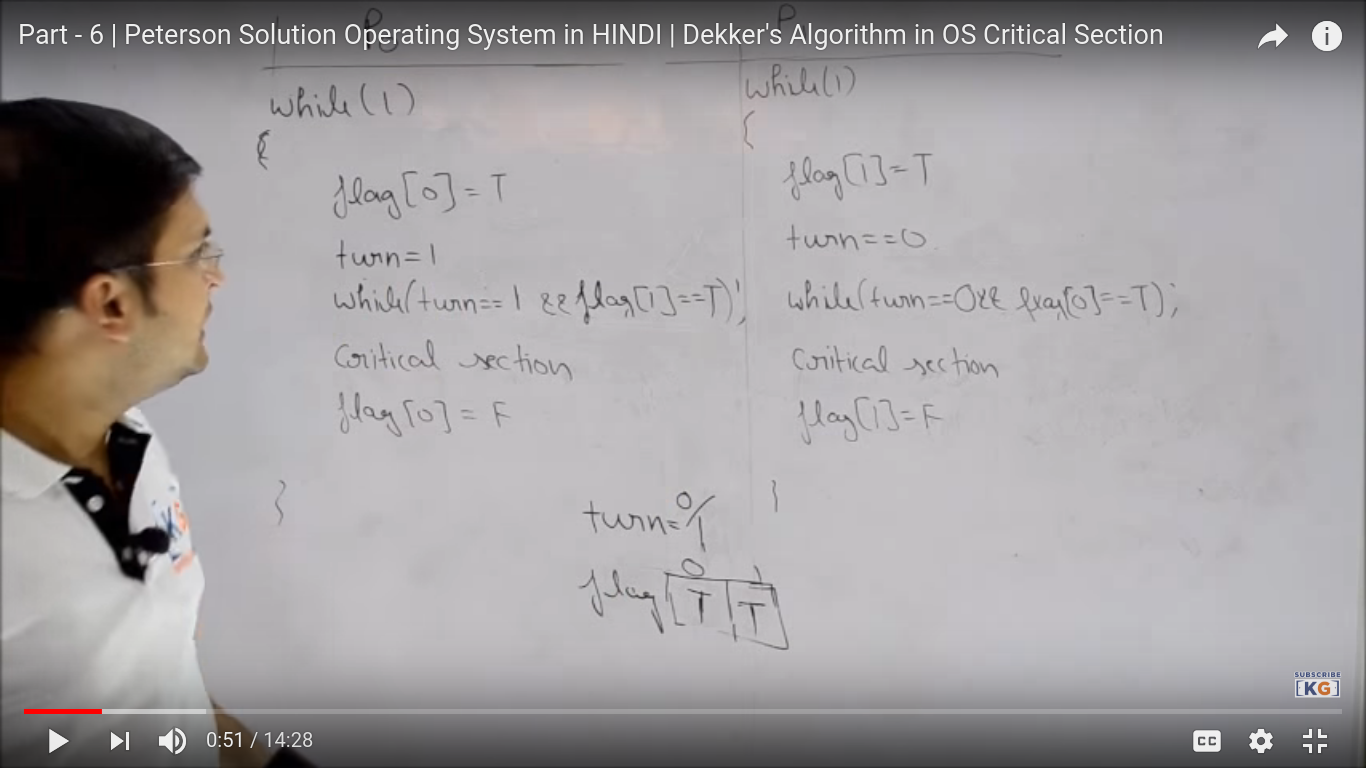 Part - 6 | Peterson Solution Operating System in HINDI | Dekker's Algorithm in OS Critical Section
P0
while(1)
{
flag[0] = T
turn=1
while(turn==1 && flag[1]==T);
Critical section
flag[0] = F
}
P
while(1)
{
flag[1]=T
turn==0
while(turn==0&& flag[0]==T);
Critical section
flag[1]=F
}
turn=0/1
0 1
flag[T|T]
SUBSCRIBE
[KG]
0:51 / 14:28
CC